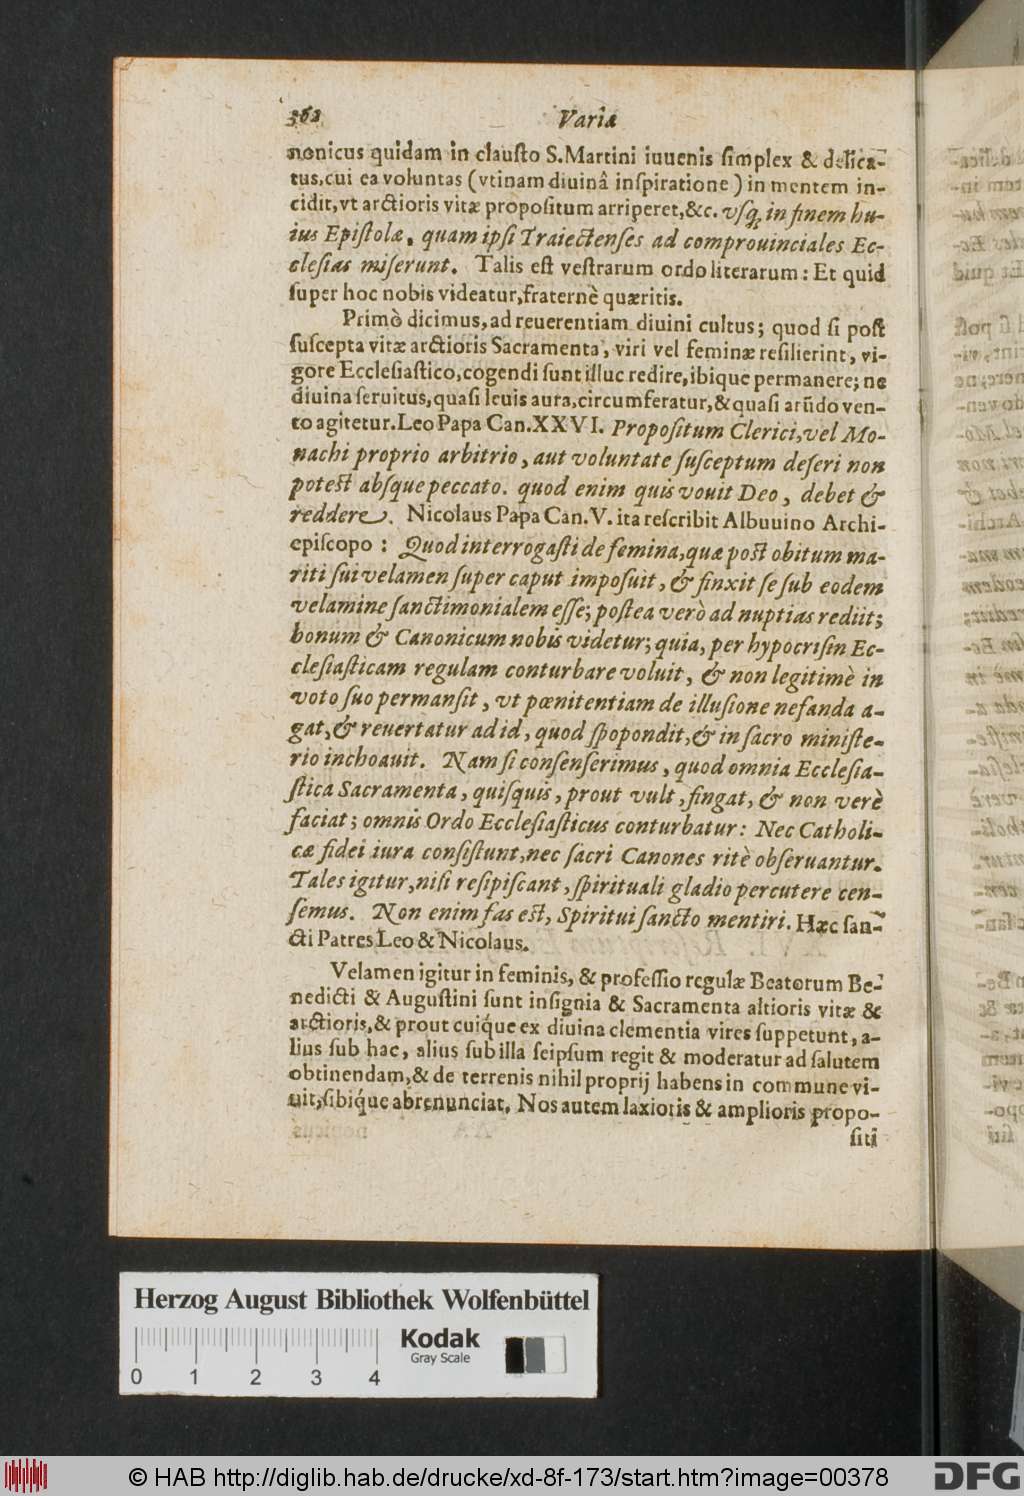 362 Varia
nonicus quidam in clauſto S. Martini iuuenis ſimplex & delica-
tus, cui ea voluntas (vtinam diuinâ inſpiratione) in mentem in-
cidit, vt arctioris vitæ propoſitum arriperet, &c. vſq; in finem hu-
ius Epiſtolæ, quam ipſi Traiectenſes ad comprouinciales Ec-
cleſias miſerunt. Talis eſt veſtrarum ordo literarum: Et quid
ſuper hoc nobis videatur, fraternè quæritis.
Primò dicimus, ad reuerentiam diuini cultus; quod ſi poſt
ſuſcepta vitæ arctioris Sacramenta, viri vel feminæ reſilierint, vi-
gore Eccleſiaſtico, cogendi ſunt illuc redire, ibique permanere; ne
diuina ſeruitus, quaſi leuis aura, circumferatur, & quaſi arūdo ven-
to agitetur. Leo Papa Can. XXVI. Propoſitum Clerici, vel Mo-
nachi proprio arbitrio, aut voluntate ſuſceptum deſeri non
poteſt abſque peccato. quod enim quis vouit Deo, debet &
reddere. Nicolaus Papa Can. V. ita reſcribit Albuuino Archi-
epiſcopo: Quod interrogaſti de femina, quæ poſt obitum ma-
riti ſui velamen ſuper caput impoſuit, & finxit ſe ſub eodem
velamine ſanctimonialem eſſe; poſtea verò ad nuptias rediit;
bonum & Canonicum nobis videtur; quia, per hypocriſin Ec-
cleſiaſticam regulam conturbare voluit, & non legitimè in
voto ſuo permanſit, vt pœnitentiam de illuſione nefanda a-
gat, & reuertatur ad id, quod ſpopondit, & in ſacro miniſte-
rio inchoauit. Nam ſi conſenſerimus, quod omnia Eccleſia-
ſtica Sacramenta, quiſquis, prout vult, fingat, & non verè
faciat; omnis Ordo Eccleſiaſticus conturbatur: Nec Catholi-
cæ fidei iura conſiſtunt, nec ſacri Canones ritè obſeruantur.
Tales igitur, niſi reſipiſcant, ſpirituali gladio percutere cen-
ſemus. Non enim fas eſt, Spiritui ſancto mentiri. Hæc ſan-
cti Patres Leo & Nicolaus.
Velamen igitur in feminis, & profeſſio regulæ Beatorum Be-
nedicti & Auguſtini ſunt inſignia & Sacramenta altioris vitæ &
arctioris, & prout cuíque ex diuina clementia vires ſuppetunt, a-
lius ſub hac, alius ſub illa ſeipſum regit & moderatur ad ſalutem
obtinendam, & de terrenis nihil proprij habens in commune vi-
uit, ſibíque abrenunciat. Nos autem laxioris & amplioris propo-
ſiti
Herzog August Bibliothek Wolfenbüttel
Kodak
Gray Scale
0 1 2 3 4
© HAB http://diglib.hab.de/drucke/xd-8f-173/start.htm?image=00378
DFG